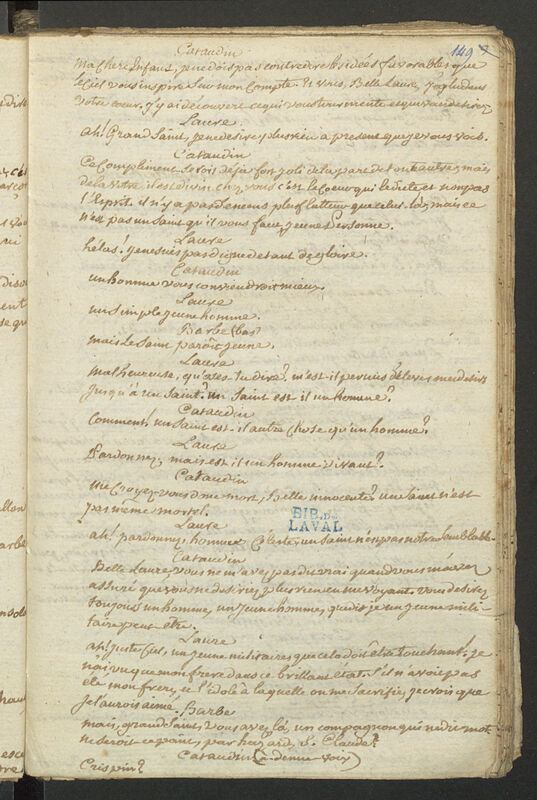 149
Cataudin
Ma Chere Enfant, je ne dois pas contredire les idées favorables que
le Ciel vous inspire sur mon Compte. Et vous, Belle Laure, j'ai lu dans
votre coeur. J'y ai découvert ce qui vous tourmente et ce que vous desirez
Laure.
ah! Grand Saint, je ne desire plus rien a present que je vous vois.
Cataudin
Ce Compliment seroit deja fort joli de la part de tout autre, mais
de la vôtre il est divin chez vous c'est le Coeur qui le dicte et non pas
l'Esprit. il n'y a pas d'encens plus flatteur que celui là, mais ce
n'est pas un Saint qu'il vous faut, jeune Personne.
Laure
hélas! je ne suis pas digne de tant de gloire.
Cataudin
un homme vous conviendroit mieux
Laure
un simple jeune homme.
Barbe (bas)
mais le Saint paroît jeune.
Laure
Malheureuse, qu'oses tu dire? m'est-il permis d'élever mes desirs
jusqu'à un Saint? un Saint est-il un homme?
Cataudin
Comment! un Saint est-il autre chose qu'un homme?
Laure
Pardonnez, mais est-il un homme vivant?
Cataudin
me Croyez-vous donc mort, Belle innocente? un Saint n'est
pas même mortel.
BIB. DE
LAVAL
Laure
ah! pardonnez, homme Céleste, un Saint n'est pas notre Semblable.
Cataudin
Belle Laure, vous ne m'avez pas dit vrai quand vous m'avez
assuré que vous ne desiriez plus rien en me voyant. vous desirez
toujours un homme, un jeune homme, que dis-je un jeune mili-
taire peut etre.
Laure
ah! juste Ciel, un jeune militaire, que cela doit etre touchant! je
n'ai vu que mon frere dans ce brillant état. S'il n'avoit pas
été mon frere, et l'idole à laquelle on me Sacrifie, je crois que
je l'aurois aimé.
Barbe
mais, grand Saint, vous avez là, un compagnon qui ne dit mot
ne seroit ce point, par hazard, St. Claude?
Cataudin (à demie voix)
Crispin?